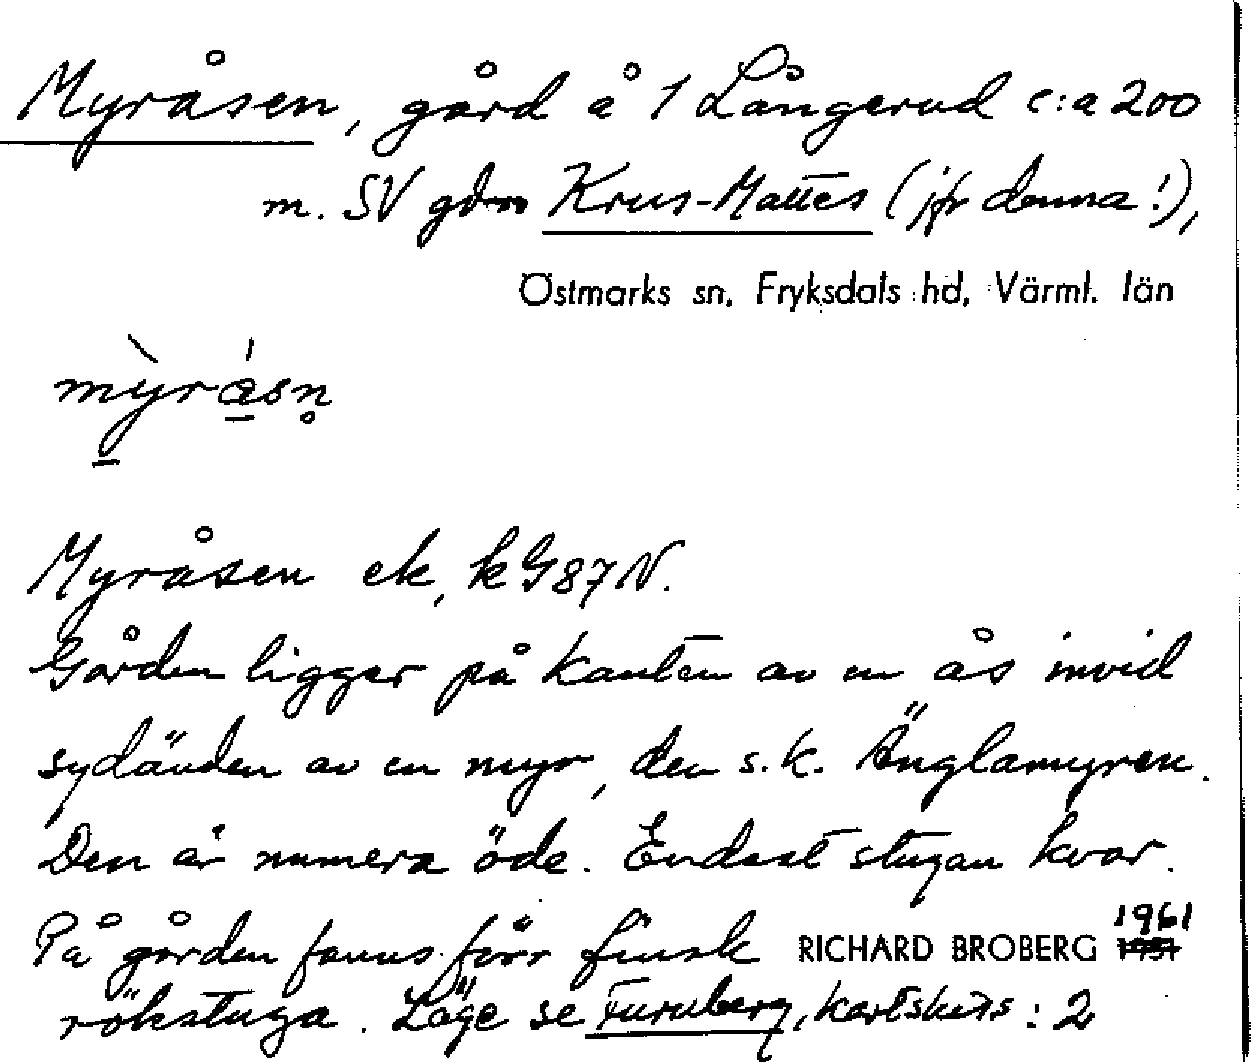 Myråsen, gård å 1 Långerud c:a 200
m. SV gdn Krus-Mattes (jfr denna!),
Östmarks sn, Fryksdals hd, Värml. län
mỳrǻsn̥
Myråsen ek, kG87N.
Gården ligger på kanten av en ås invid
sydänden av en myr, den s.k. Änglamyren.
Den är numera öde. Endast stugan kvar.
På gården fanns förr finsk RICHARD BROBERG 1961
rökstuga. Läge se Furuberg, kartskiss: 2